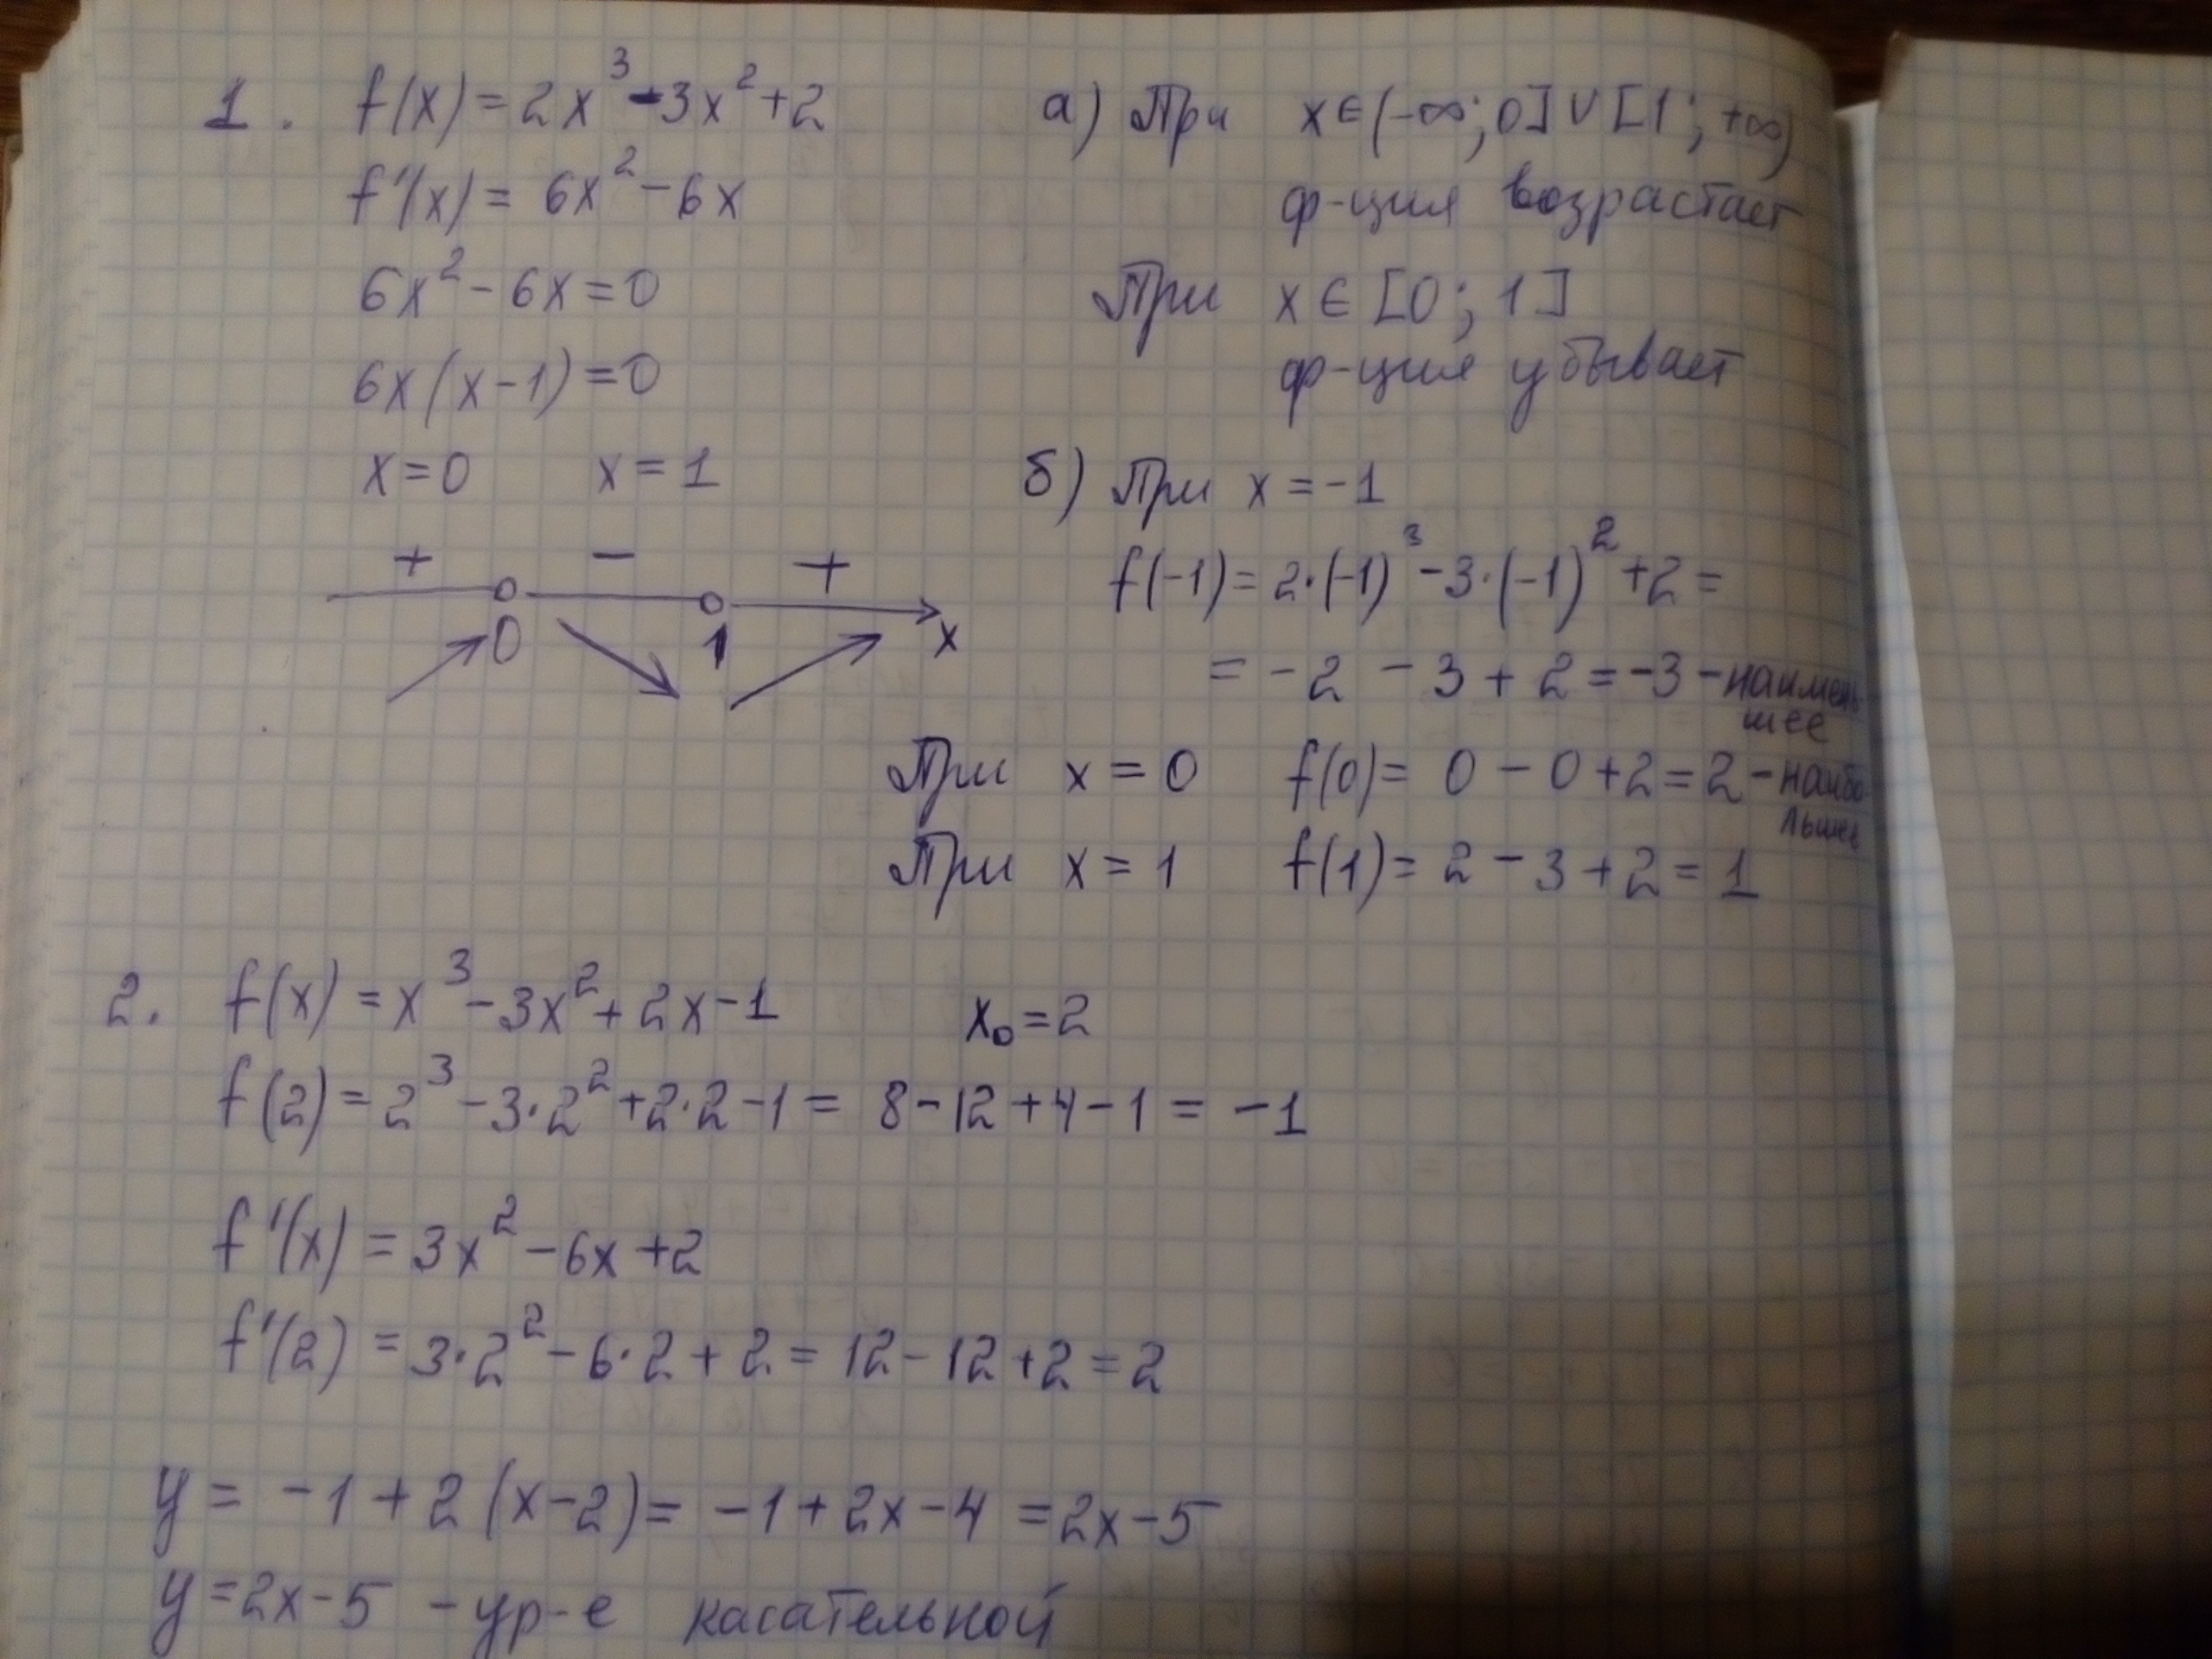 1. f(x) = 2x³ - 3x² + 2
f'(x) = 6x² - 6x
6x² - 6x = 0
6x(x - 1) = 0
x = 0 x = 1
+ - +
0 1 x
а) При x ∈ (-∞; 0] ∨ [1; +∞)
ф-ция возрастает
При x ∈ [0; 1]
ф-ция убывает
б) При x = -1
f(-1) = 2·(-1)³ - 3·(-1)² + 2 =
= -2 - 3 + 2 = -3 - наимень
шее
При x = 0 f(0) = 0 - 0 + 2 = 2 - наибо
льшее
При x = 1 f(1) = 2 - 3 + 2 = 1
2. f(x) = x³ - 3x² + 2x - 1 x₀ = 2
f(2) = 2³ - 3·2² + 2·2 - 1 = 8 - 12 + 4 - 1 = -1
f'(x) = 3x² - 6x + 2
f'(2) = 3·2² - 6·2 + 2 = 12 - 12 + 2 = 2
y = -1 + 2(x - 2) = -1 + 2x - 4 = 2x - 5
y = 2x - 5 - ур-е касательной